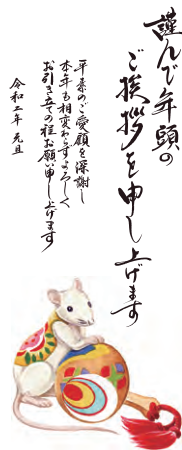 謹んで年頭の
ご挨拶を申し上げます
平素のご愛顧を深謝し
本年も相変わらずよろしく
お引き立ての程お願い申し上げます
令和二年 元旦